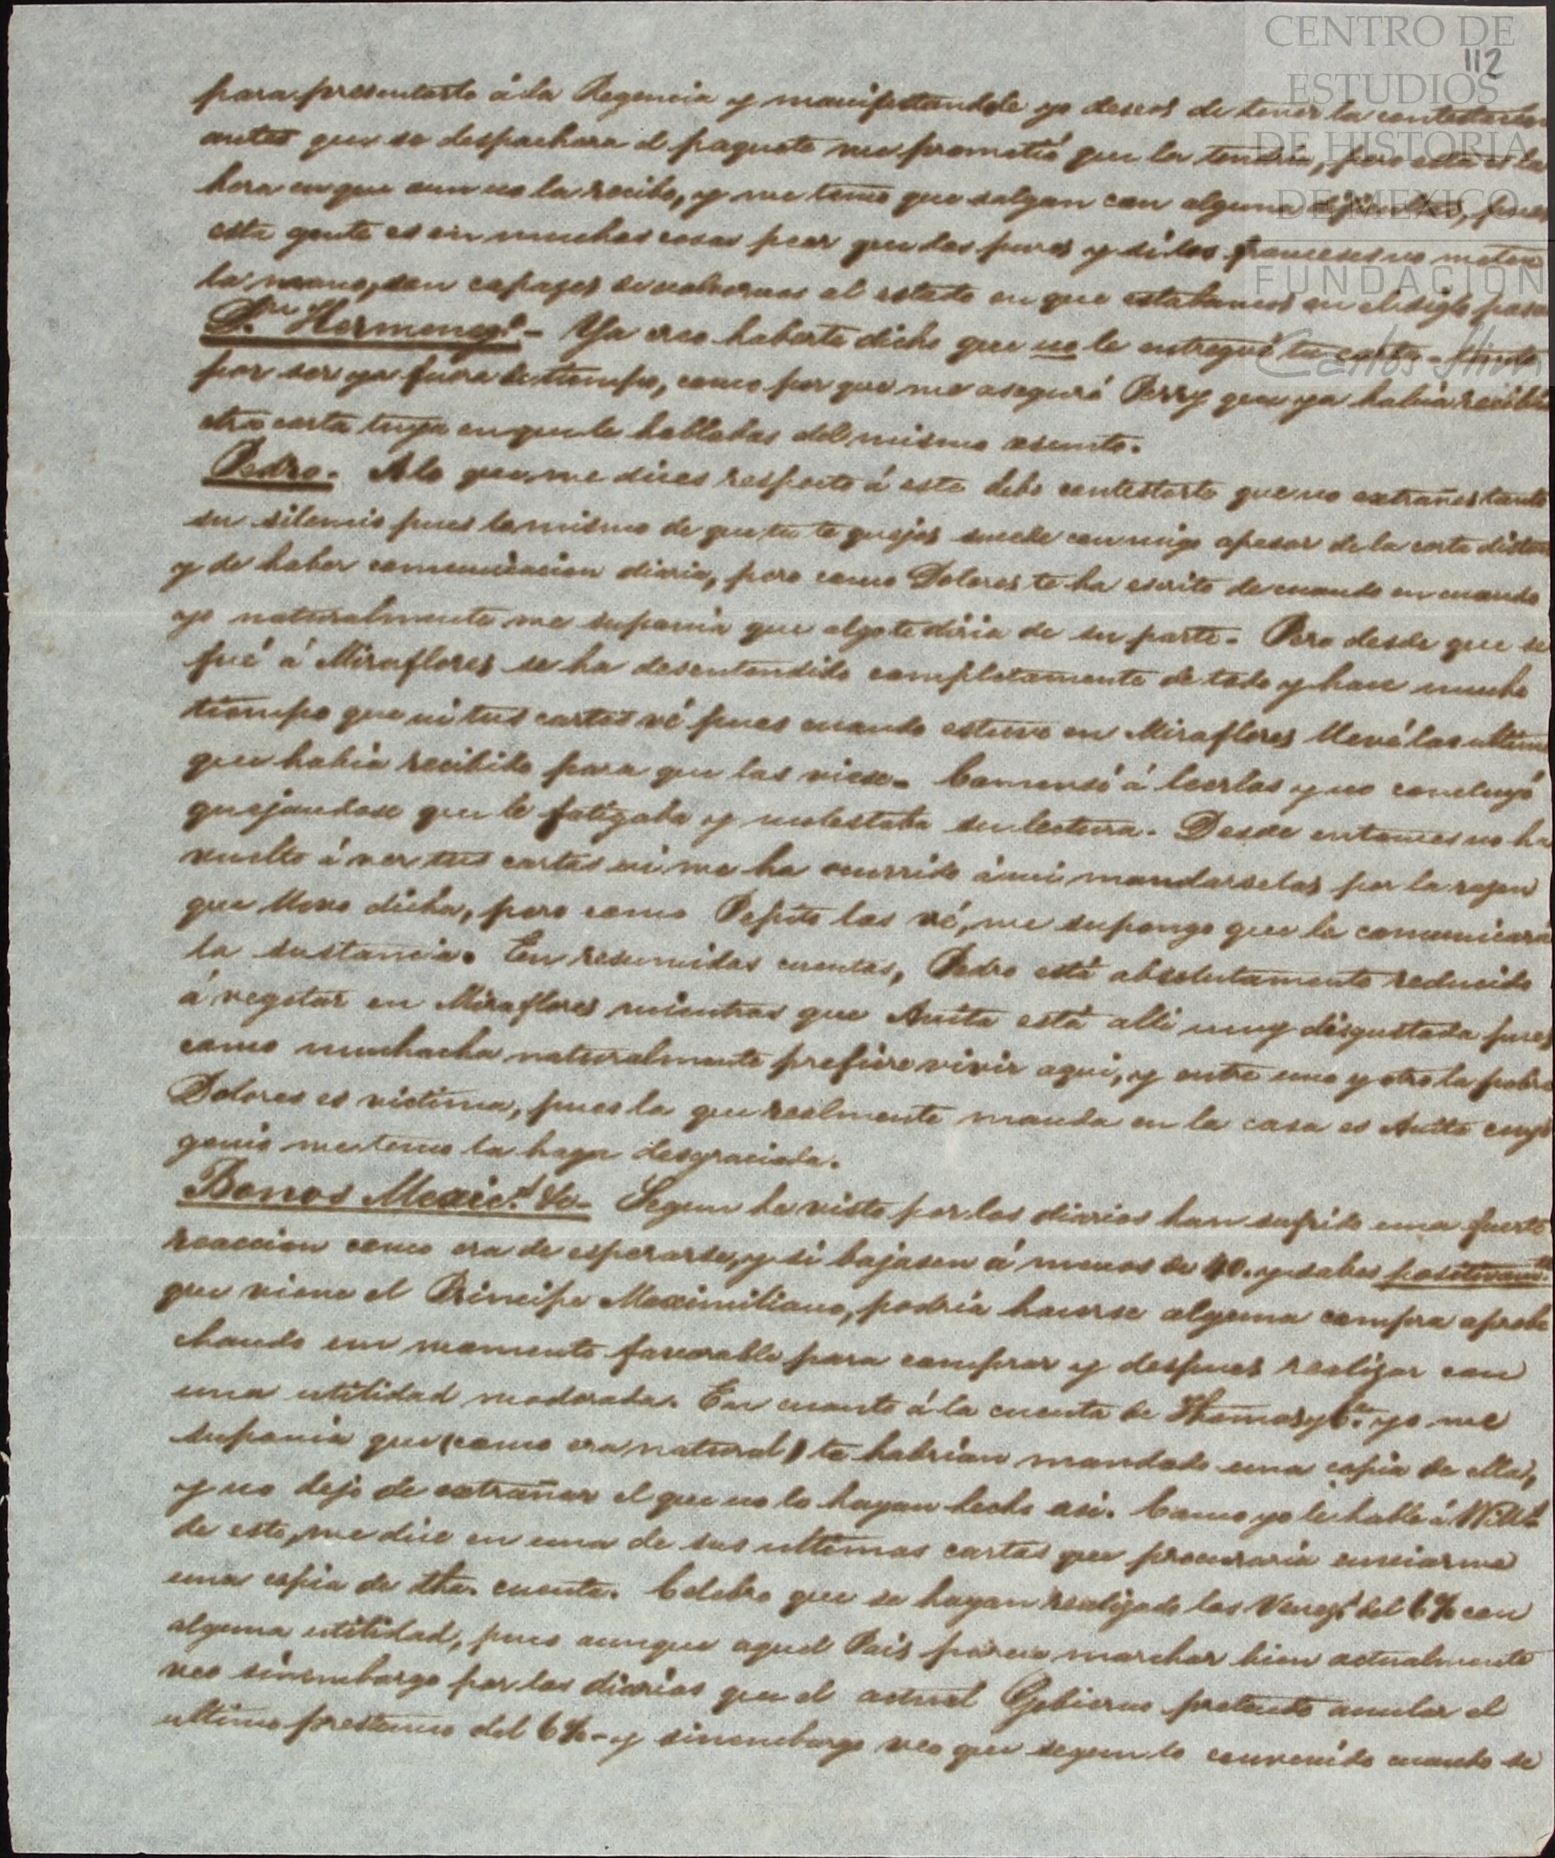 CENTRO DE
ESTUDIOS
DE HISTORIA
DE MEXICO
FUNDACIÓN
Carlos Slim
112
para presentarlo á la Regencia y manifestandole yo deseos de tener la contestacion
antes que se despachara el paquete me prometió que la tendria, pero esta es la
hora en que aun no la recibo, y me temo que salgan con alguna, pues
esta gente es en muchas cosas peor que los puros y si los franceses no meten
la mano, son capaces de volvernos al estado en que estabamos en el siglo pasa
Dn. Hermenegdo. - Ya creo haberte dicho que no le entregué tu carta - tanto
por ser ya fuera de tiempo, como por que me aseguró Perry que ya habia recibido
otra carta tuya en que le hablabas del mismo asunto.
Pedro. A lo que me dices respecto á este debo contestarte que no extrañes tanto
su silencio pues lo mismo de que tu te quejas sucede conmigo apesar de la corta distan
y de haber comunicacion diaria, pero como Dolores te ha escrito de cuando en cuando
yo naturalmente me suponia que algo te diria de su parte. Pero desde que se
fué á Miraflores se ha desentendido completamente de todo y hace mucho
tiempo que ni tus cartas vé pues cuando estuve en Miraflores llevé las ultimas
que habia recibido para que las viese. Comensó á leerlas y no concluyó
quejandose que le fatigaba y molestaba su lectura. Desde entonces no ha
vuelto á ver tus cartas ni me ha ocurrido á mi mandarselas por la razon
que llevo dicha, pero como Pepito las vé, me supongo que le comunicará
la sustancia. En resumidas cuentas, Pedro está absolutamente reducido
á vegetar en Miraflores mientras que Anita está alli muy disgustada pues
como muchacha naturalmente prefiere vivir aqui, y entre uno y otro la pobre
Dolores es victima, pues la que realmente manda en la casa es Anita cuyo
genio me temo la haga desgraciada.
Bonos Mexics. &a - Segun he visto por los diarios han sufrido una fuerte
reaccion como era de esperarse, y si bajasen á menos de 40. y sabes positivamte.
que viene el Principe Maximiliano, podría hacerse alguna compra aprobe
chando un momento favorable para comprar y despues realizar con
una utilidad moderada. En cuanto á la cuenta de Thomas y Ca. yo me
suponia que (como era natural) te habrían mandado una copia de ella,
y no dejo de extrañar el que no lo hayan hecho asi. Como yo le hablé á Wills.
de esto, me dice en una de sus ultimas cartas que procuraria enviarme
una copia de dha. cuenta. Celebro que se hayan realizado los Venezs. del 6% con
alguna utilidad, pues aunque aquel Pais parece marchar bien actualmente
veo sinembargo por los diarios que el actual Gobierno pretende anular el
ultimo prestamo del 6% - y sinembargo veo que segun lo convenido cuando se